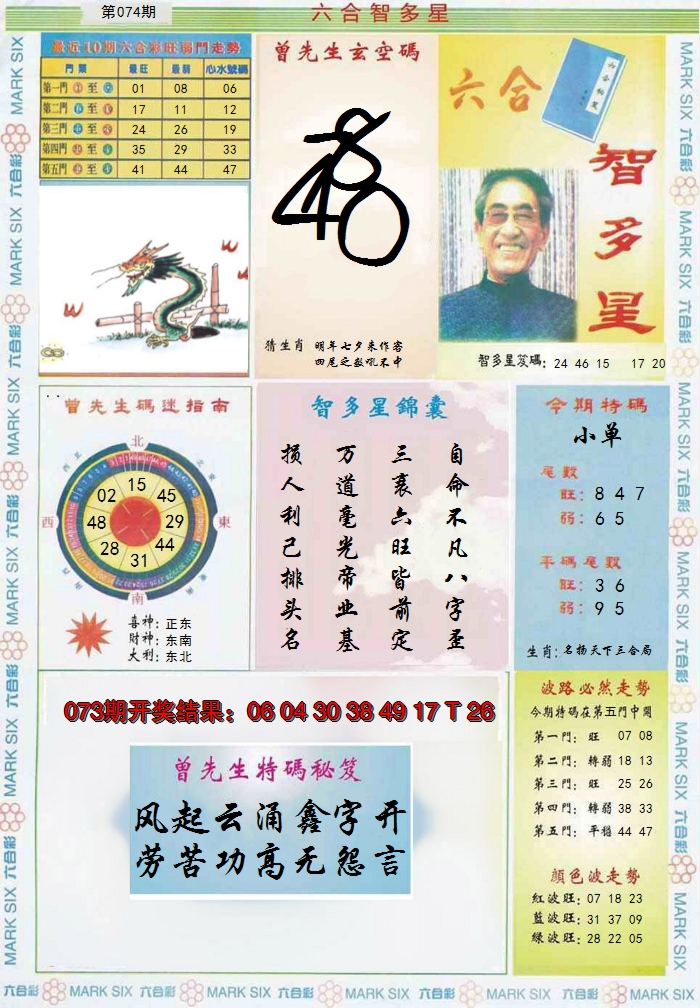 第074期
六合智多星
最近10期六合彩旺弱門走勢
門類 最旺 最弱 心水號碼
第一門 至 01 08 06
第二門 至 17 11 12
第三門 至 24 26 19
第四門 至 35 29 33
第五門 至 41 44 47
曾先生玄空碼
猜生肖 明年七夕来作客
四尾之数吼不中
六合
智多星
智多星笈碼: 24 46 15 17 20
曾先生碼迷指南
北
西
東
南
15
45
29
44
31
28
48
02
喜神: 正东
财神: 东南
大利: 东北
智多星錦囊
自命不凡八字歪
三衰六旺皆前定
万道毫光帝业基
损人利己排头名
今期特碼
小单
尾数
旺: 8 4 7
弱: 6 5
平碼尾数
旺: 3 6
弱: 9 5
生肖: 名扬天下三合局
073期开奖结果：06 04 30 38 49 17 T 26
曾先生特碼秘笈
风起云涌鑫字开
劳苦功高无怨言
波路必然走势
今期特碼在第五門中開
第一門: 旺 07 08
第二門: 轉弱 18 13
第三門: 旺 25 26
第四門: 轉弱 38 33
第五門: 平穩 44 47
顏色波走勢
紅波旺: 07 18 23
藍波旺: 31 37 09
綠波旺: 28 22 05
MARK SIX 六合彩